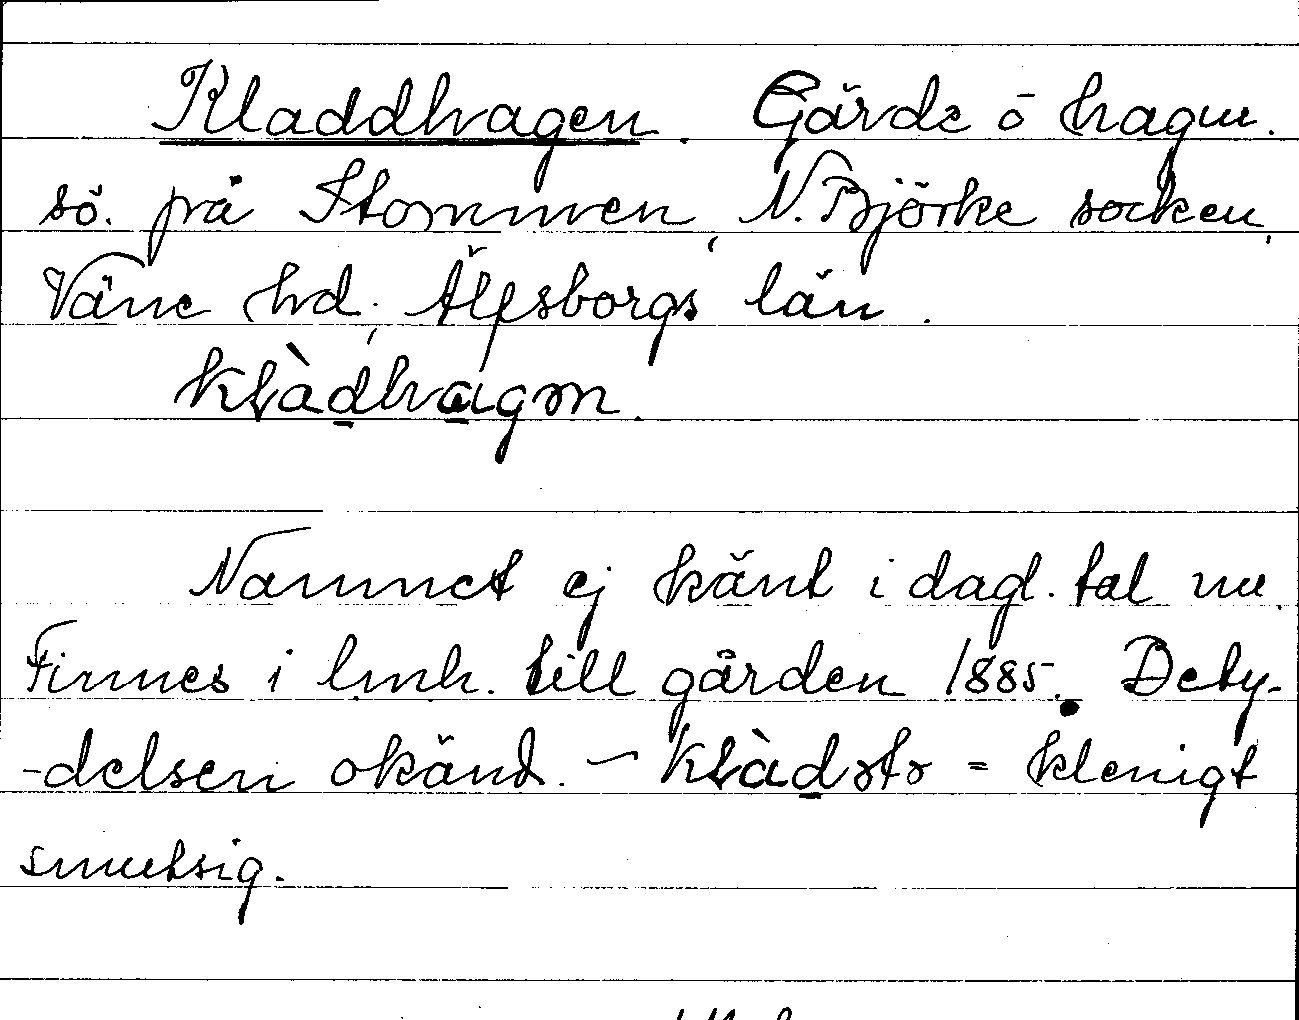 Kladdhagen. Gärde o hagm.
sö. på Stommen, N. Björke socken,
Väne hd, Älfsborgs län.
klàdhagm.
Namnet ej känt i dagl. tal nu.
Finnes i lmh. till gården 1885. Bety-
-delsen okänd. - klàdotr = klenigt
smutsig.